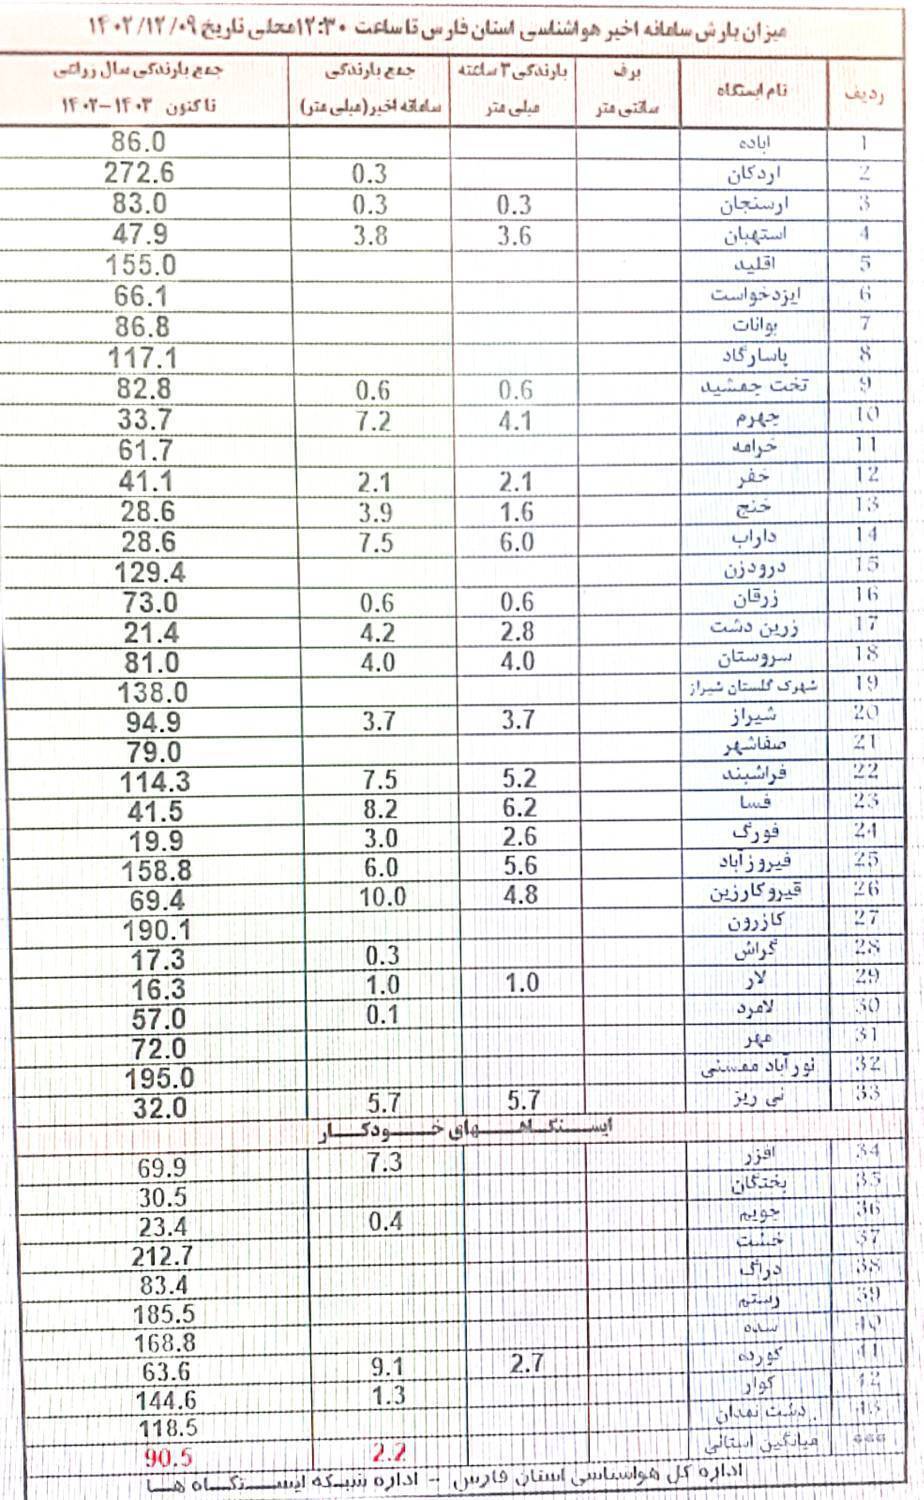 میزان بارش سامانه اخیر هواشناسی استان فارس تا ساعت ۱۲:۳۰ محلی تاریخ ۱۴۰۲/۱۲/۰۹
ردیف نام ایستگاه برف سانتی متر بارندگی ۳ ساعته میلی متر جمع بارندگی سامانه اخیر (میلی متر) جمع بارندگی سال زراعی تا کنون ۱۴۰۳-۱۴۰۲
1 آباده 86.0
2 اردکان 0.3 272.6
3 ارسنجان 0.3 0.3 83.0
4 استهبان 3.6 3.8 47.9
5 اقلید 155.0
6 ایزدخواست 66.1
7 بوانات 86.8
8 پاسارگاد 117.1
9 تخت جمشید 0.6 0.6 82.8
10 جهرم 4.1 7.2 33.7
11 خرامه 61.7
12 خفر 2.1 2.1 41.1
13 خنج 1.6 3.9 28.6
14 داراب 6.0 7.5 28.6
15 درودزن 129.4
16 زرقان 0.6 0.6 73.0
17 زرین دشت 2.8 4.2 21.4
18 سروستان 4.0 4.0 81.0
19 شهرک گلستان شیراز 138.0
20 شیراز 3.7 3.7 94.9
21 صفاشهر 79.0
22 فراشبند 5.2 7.5 114.3
23 فسا 6.2 8.2 41.5
24 فورگ 2.6 3.0 19.9
25 فیروزآباد 5.6 6.0 158.8
26 قیروکارزین 4.8 10.0 69.4
27 کازرون 190.1
28 گراش 0.3 17.3
29 لار 1.0 1.0 16.3
30 لامرد 0.1 57.0
31 مهر 72.0
32 نورآباد ممسنی 195.0
33 نی ریز 5.7 5.7 32.0
ایستگاههای خودکار
34 افزر 7.3 69.9
35 بختگان 30.5
36 جویم 0.4 23.4
37 خشت 212.7
38 دراک 83.4
39 رستم 185.5
40 سده 168.8
41 کورده 2.7 9.1 63.6
42 کوار 1.3 144.6
43 دشت نمدان 118.5
*** میانگین استانی 2.2 90.5
اداره کل هواشناسی استان فارس - اداره شبکه ایستگاه ها